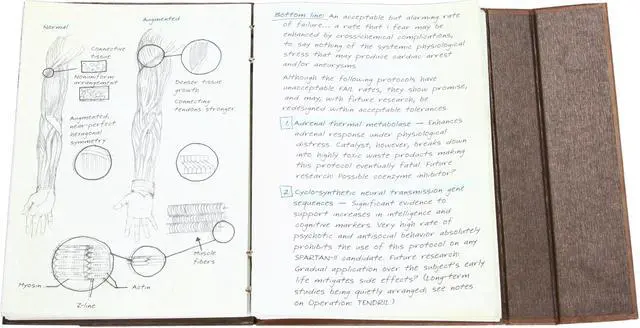 Normal
Augmented
Connective
tissue
Nonuniform
arrangement
Augmented,
near-perfect
hexagonal
symmetry
Denser tissue
growth
Connecting
tendons stronger
Muscle
fibers
Myosin
Actin
Z-line
Bottom line: An acceptable but alarming rate
of failure... a rate that I fear may be
enhanced by crosschemical complications,
to say nothing of the systemic physiological
stress that may produce cardiac arrest
and/or aneurysms.
Although the following protocols have
unacceptable FAIL rates, they show promise,
and may, with future research, be
redesigned within acceptable tolerances.
1. Adrenal thermal metabolase — Enhances
adrenal response under physiological
distress. Catalyst, however, breaks down
into highly toxic waste products making
this protocol eventually fatal. Future
research: Possible coenzyme inhibitor?
2. Cyclo-synthetic neural transmission gene
sequences — Significant evidence to
support increases in intelligence and
cognitive markers. Very high rate of
psychotic and antisocial behavior absolutely
prohibits the use of this protocol on any
SPARTAN-II candidate. Future research:
Gradual application over the subject's early
life mitigates side effects? (Long-term
studies being quietly arranged; see notes
on Operation: TENDRIL.)